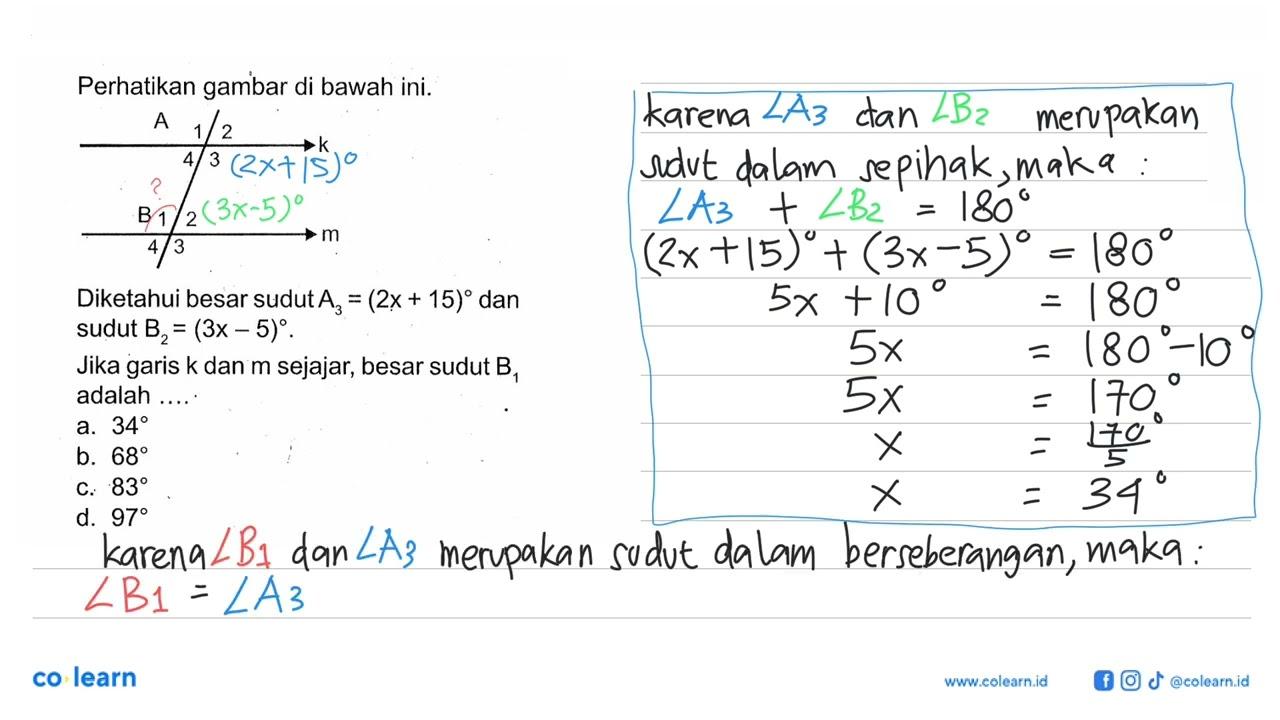 Perhatikan gambar di bawah ini.
A 1 2
k
4 3 (2x+15)°
?
B 1 2 (3x-5)°
m
4 3
Diketahui besar sudut A₃ = (2x + 15)° dan
sudut B₂ = (3x – 5)°.
Jika garis k dan m sejajar, besar sudut B₁
adalah ....
a. 34°
b. 68°
c. 83°
d. 97°
karena ∠A3 dan ∠B2 merupakan
sudut dalam sepihak, maka :
∠A3 + ∠B2 = 180°
(2x+15)° + (3x-5)° = 180°
5x + 10° = 180°
5x = 180° - 10°
5x = 170°
x = 170°/5
x = 34°
karena ∠B1 dan ∠A3 merupakan sudut dalam berseberangan, maka :
∠B1 = ∠A3
co learn
www.colearn.id
@colearn.id